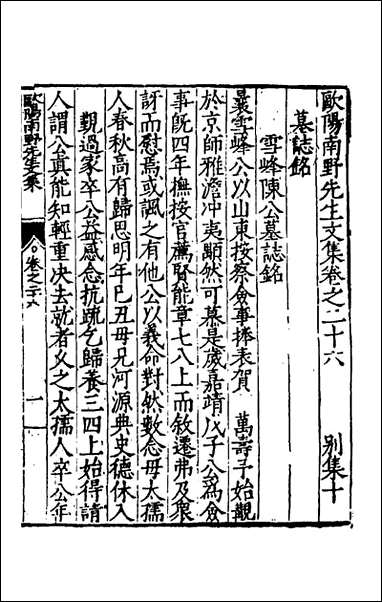 歐陽南野先生文集卷之二十六　別集十
墓誌銘
雪峰陳公墓誌銘
曩雪峰公以山東按察僉事捧表賀　萬壽予始觀
於京師雅澹冲夷顯然可慕是歲嘉靖戊子公爲僉
事旣四年撫按官薦賢能章七八上而敘遷弗及衆
訝而慰焉或諷之有他公以義命對然數念母太孺
人春秋高有歸思明年巳丑毋兄河源典史德休入
覲過家卒公益感念抗疏乞歸養三四上始得請
人謂公真能知輕重决去就者久之太孺人卒公年
歐陽南野先生文集
卷之二十六
一